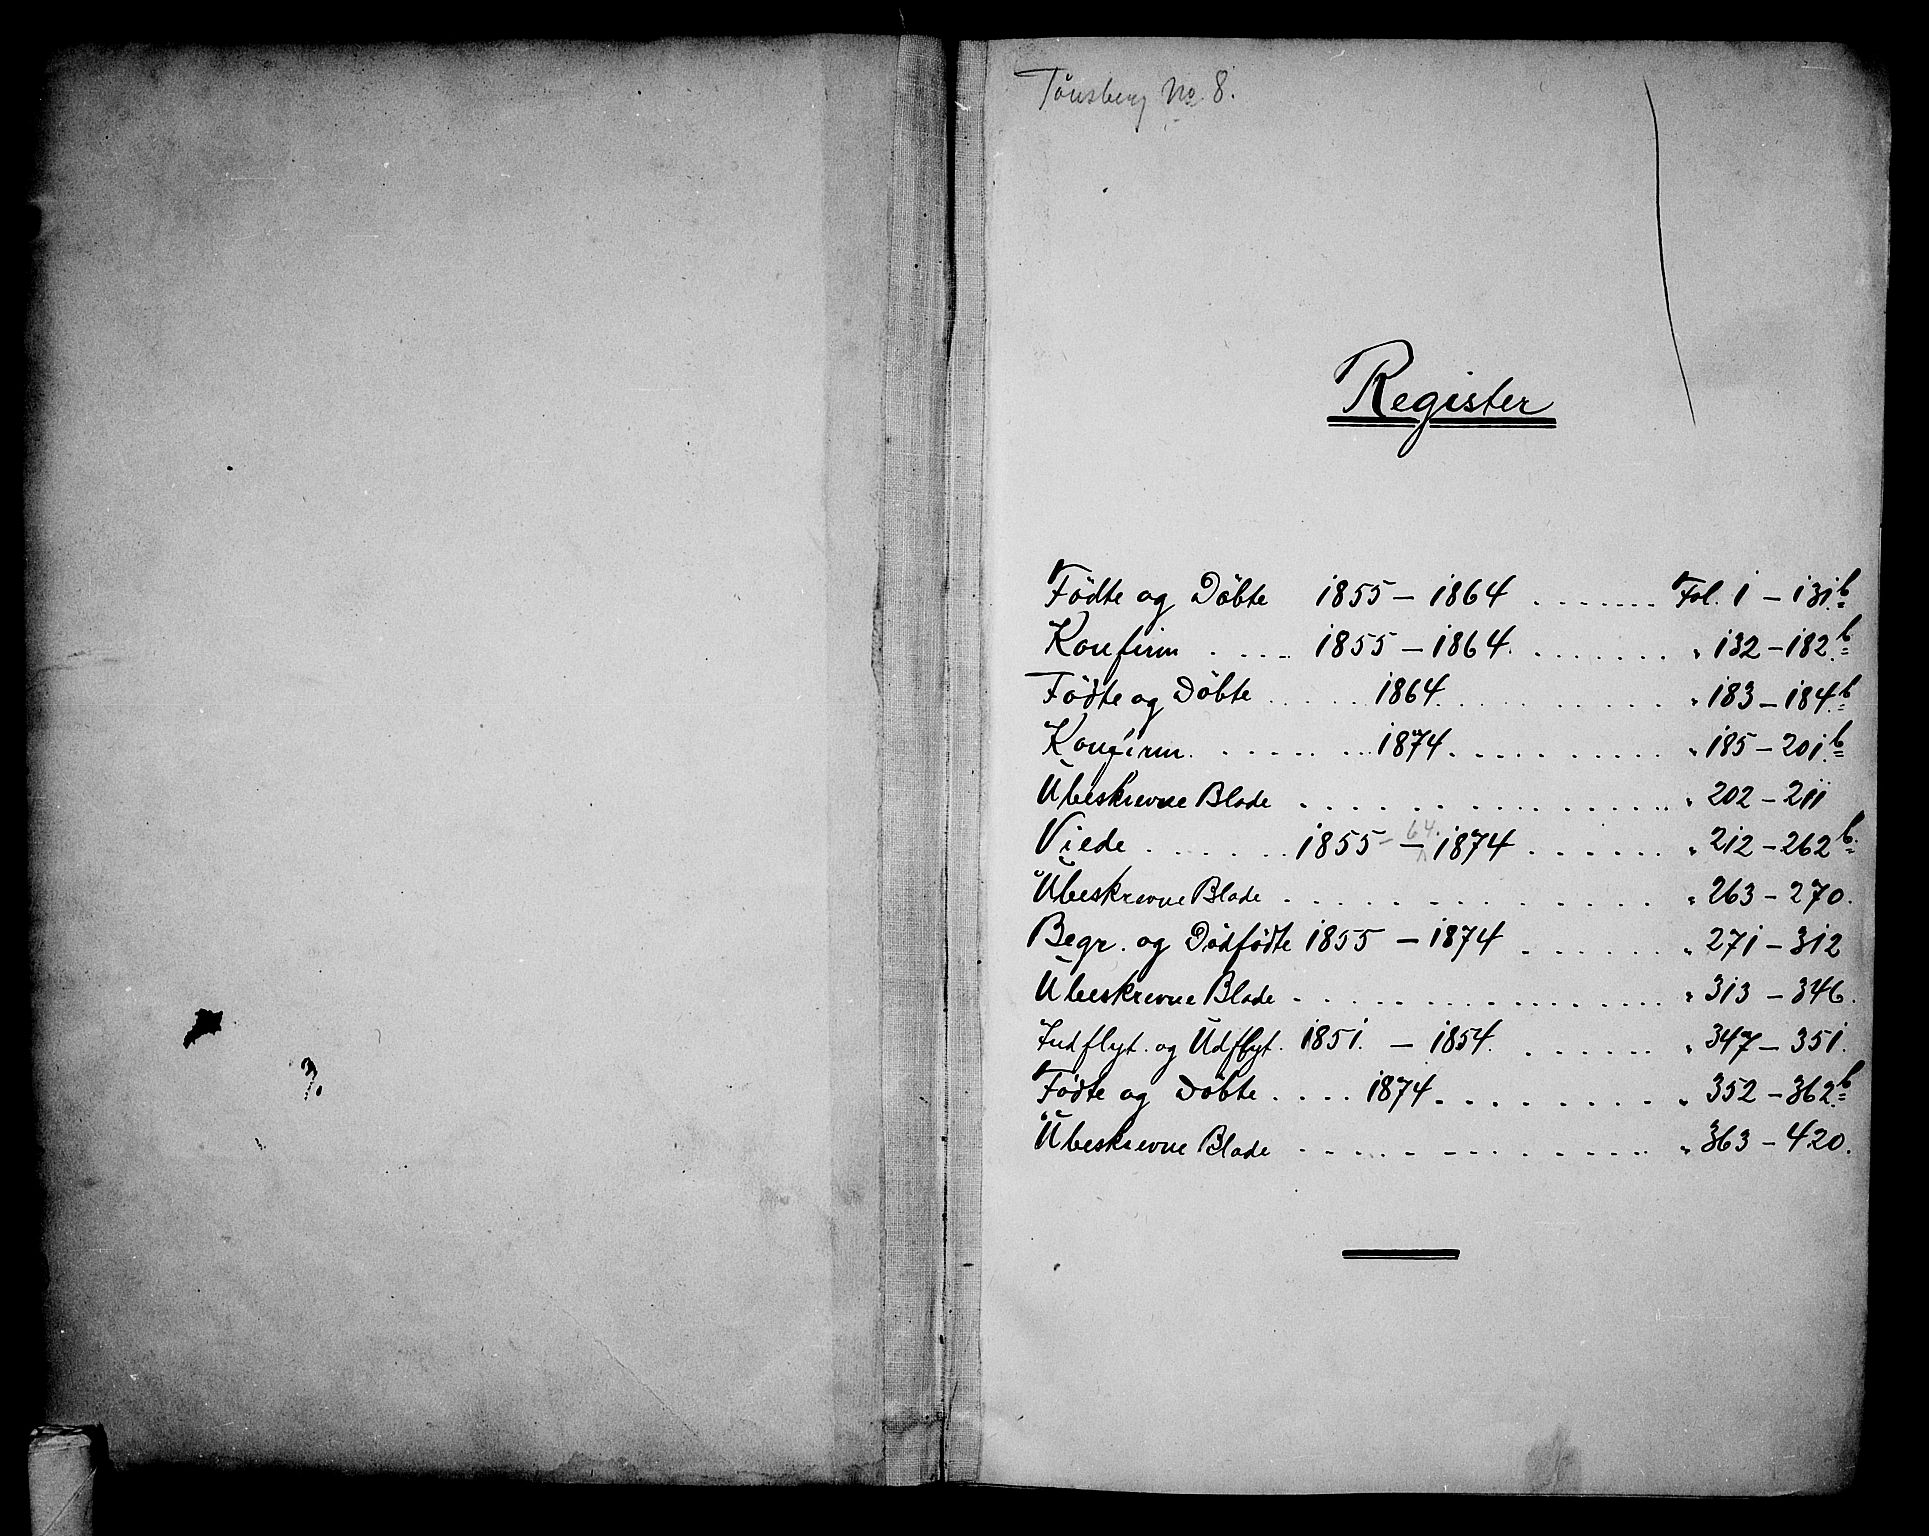 Tönsberg No 8.
Register
Födte og Döbte 1855 – 1864 ....... Fol. 1 – 131b
Konfirm .... 1855 – 1864. ....... " 132 – 182b
Födte og Döbte ..... 1864. .......... " 183 – 184b
Konfirm. ........ 1874. ......... " 185 – 201b
Ubeskrevne Blade ............... " 202 – 211
64.
Viede ...... 1855 – 1874 ...... " 212 – 262b
Ubeskrevne Blade ............. " 263 – 270.
Begr. og Dödfödte 1855 – 1874 ..... " 271 – 312
Ubeskrevne Blade ............... " 313 – 346.
Indflyt. og Udflyt. 1851. – 1854. ...... " 347 – 351.
Födte og Döbte .... 1874 ......... " 352 – 362b
Ubeskrevne Blade ............. " 363 – 420.
3.